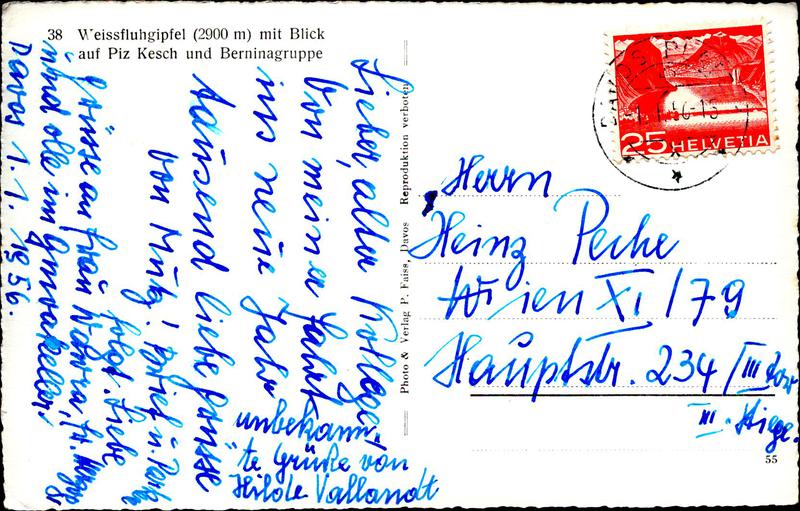 38 Weissfluhgipfel (2900 m) mit Blick
auf Piz Kesch und Berninagruppe
Lieber, alter Kollege!
Von meiner Fahrt
ins neue Jahr
tausend liebe Grüsse
von Mutz! Brief u.
folgt. Liebe
Grüsse an Frau
und alle im
Davos 1. 1. 1956.
unbekann-
te Grüße von
Hilde Vallandt
Photo & Verlag P. Faiss, Davos Reproduktion verboten
25 HELVETIA
Herrn
Heinz Peche
Wien XI/79
Hauptstr. 234/III
III. Stiege.
55